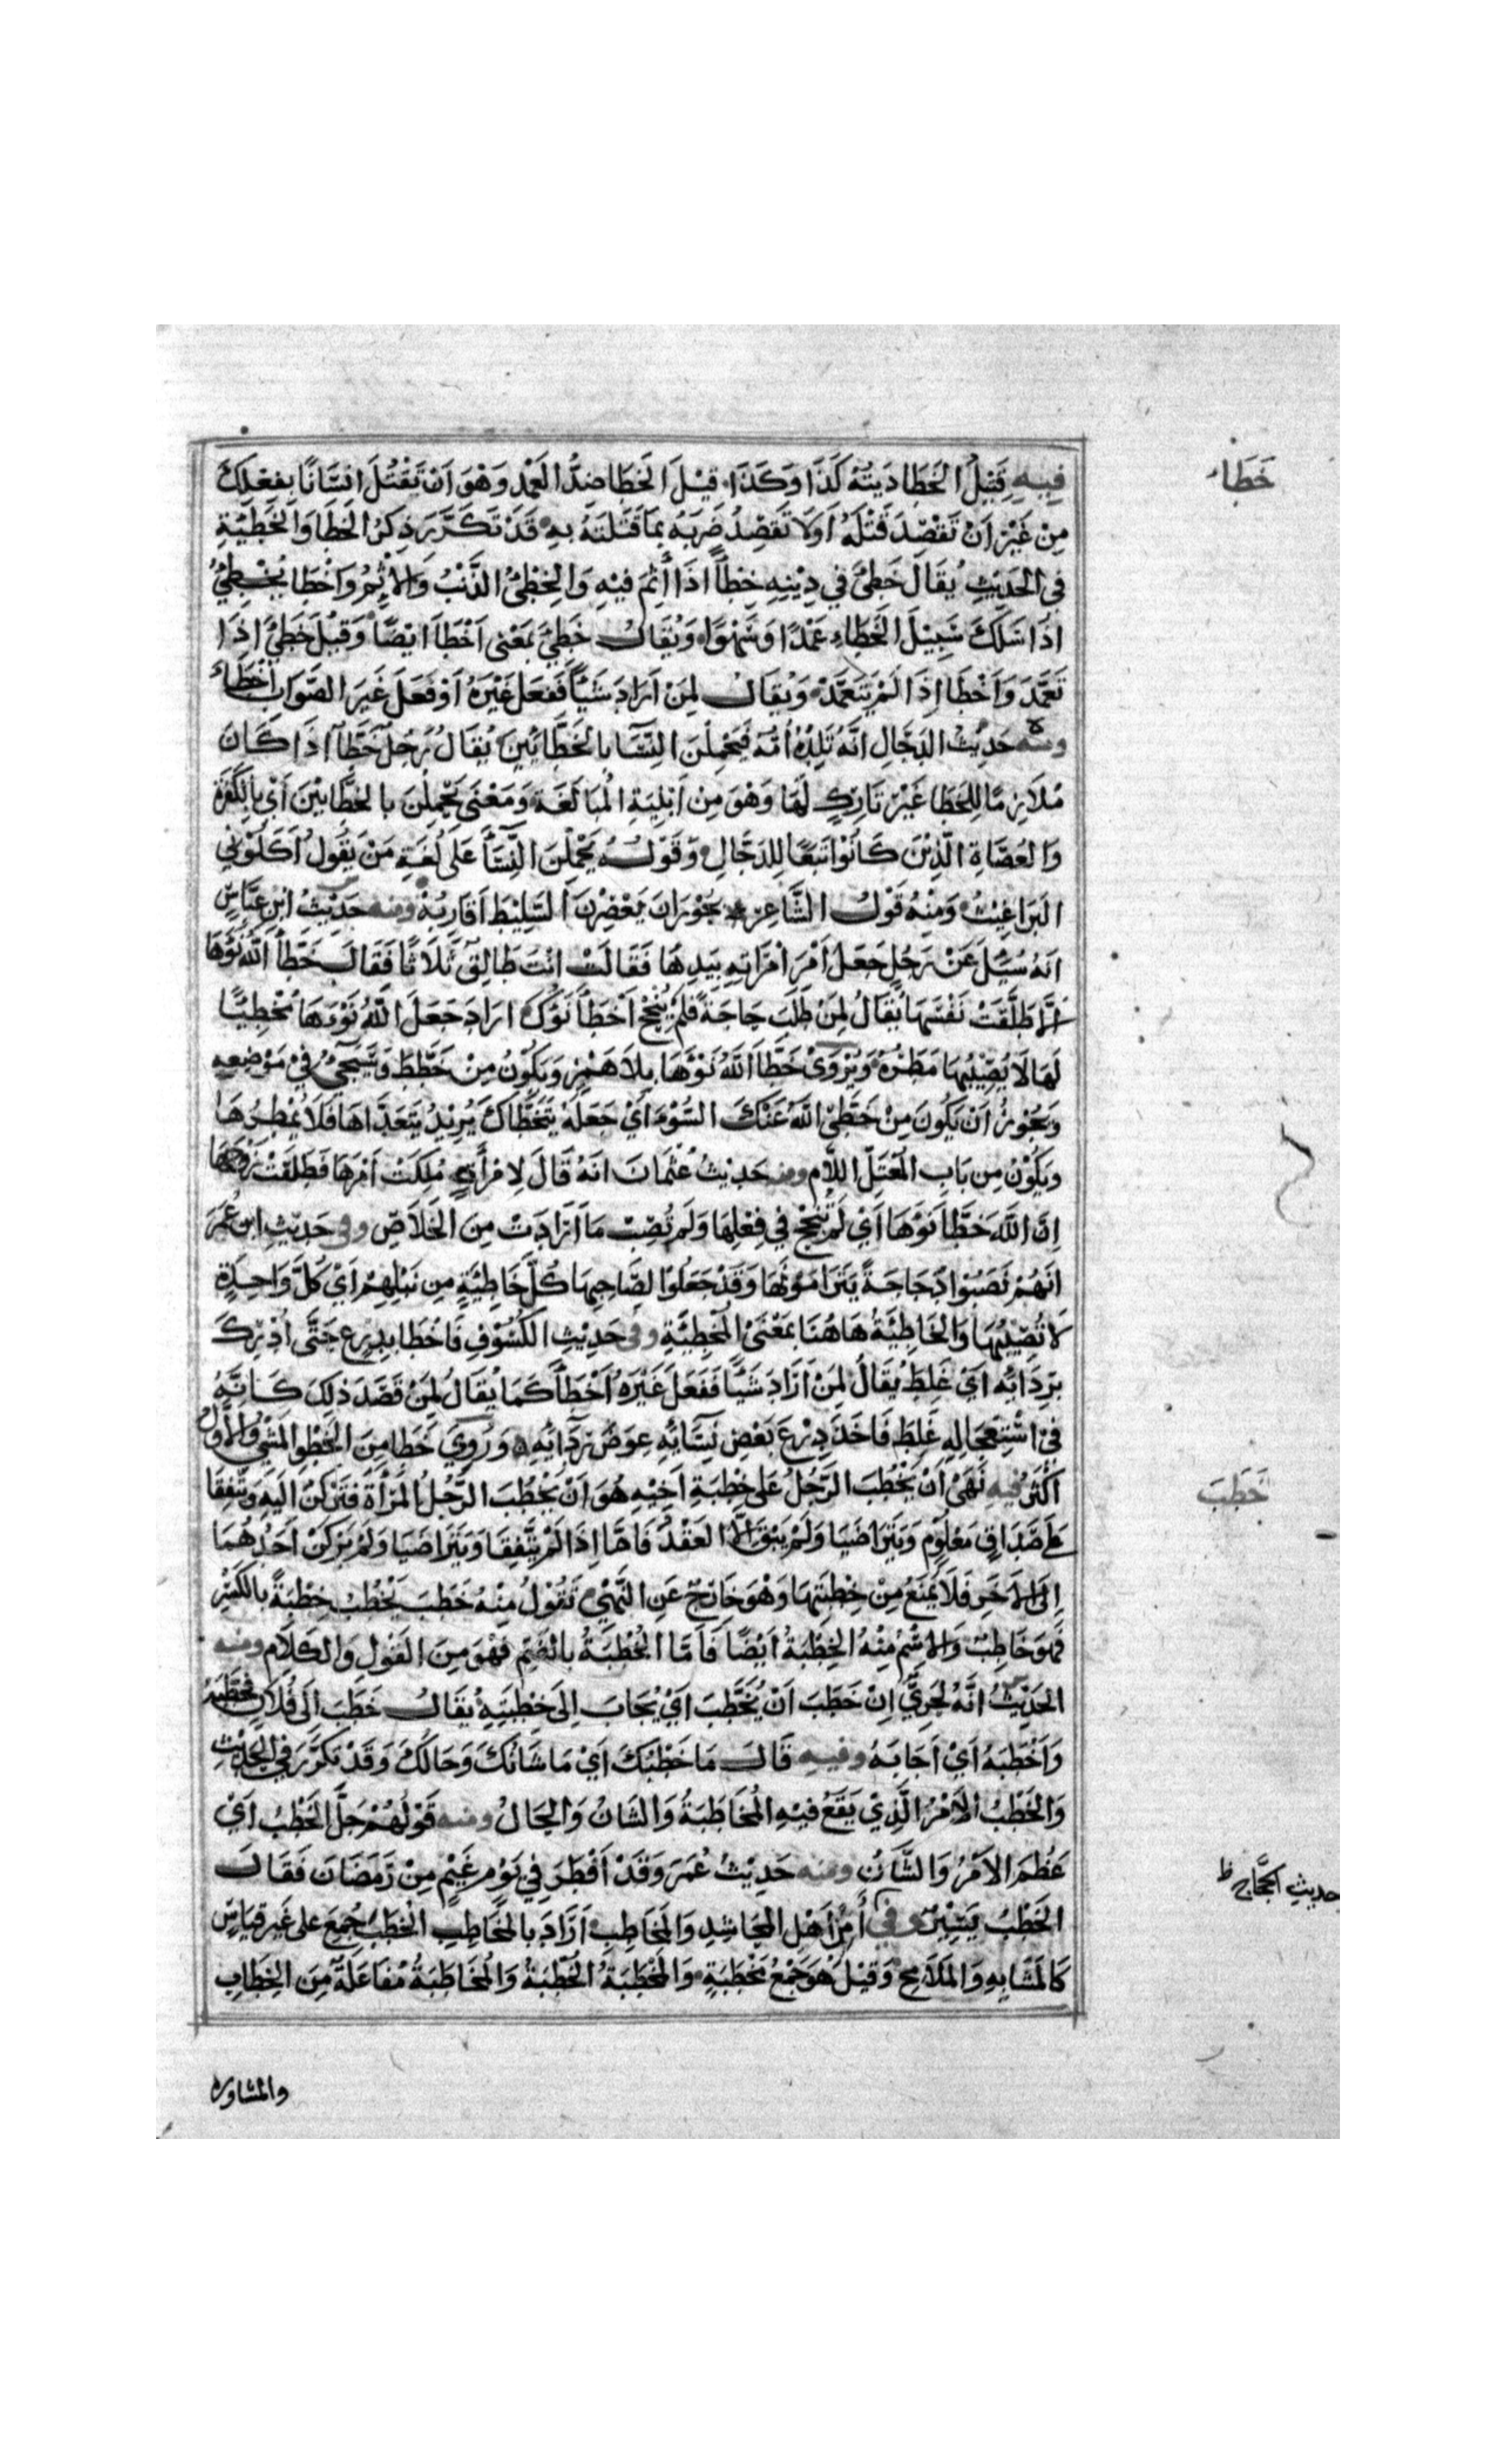 خطاء
فِيهِ قَتِيلُ الخَطَا دِيَتُهُ كَذَا وَكَذَا قتِيْلَ الخَطَا ضِدُّ العَمْدِ وَهْوَ اَنْ تَقْتُلَ اِنْسَانًا بِفِعْلِكَ
مِنْ غَيْرِ اَنْ تَقْصِدَ قَتْلَهُ اَوْ لَا تَقصِدُ ضَربَهُ بِمَا قَتَلتَهُ بِهِ قَدْ تَكَرَّرَ ذِكرُ الخَطَا وَالخَطِيْئَةِ
فِى الحَدِيْثِ يُقَالَ خَطِئَ فِي دِيْنِهِ خِطْأً اِذَا أَثِمَ فِيْهِ وَالخِطْئُ الذَّنْبُ وَالاِثْمُ وَاَخْطَا يُخْطِئُ
اِذَا سَلَكَ سَبِيْلَ الخَطَاءِ عَمْدًا وَسَهْوًا وَيُقَالُ خَطِئَ بمَعْنى اَخْطَأَ اَيْضًا وَقِيْلَ خَطِئَ اِذَا
تَعَمَّدَ وَاَخْطَا اِذَا لَمْ يَتَعَمَّدْ وَيُقَالُ لِمَنْ اَرَادَ شَيْأً فَفَعَلَ غَيْرَهُ اَوْ فَعَلَ غَيرَ الصَّوَابِ اَخْطَاءَ
ومنه حَدِيْثُ الدَجَّالِ اَنَّهُ تَلِدُهُ اُمُّهُ فَيَحْمِلْنَ النِّسَا بالخَطَّائِينَ يُقَالُ رَجُلٌ خَطَّآ اِذَا كَانَ
مُلَازِمًا لِلخَطَا غَيْرَ تَارِكٍ لَهَا وَهْوَ مِنْ اَبْنِيَةِ الْمُبَالَغَة وَمَعْنَى يَحْمِلْنَ بالخَطَّائِينَ اَىْ بِالكَفَرَةِ
وَالعُصَاةِ الَّذِيْنَ كَانُوْا تَبَعًا لِلدَجَّالِ وَقَولُهُ يَحْمِلْنَ النِّسَآ عَلَى لُغَةِ مَنْ يَقُولُ اَكَلُوْنِي
البَرَاغِيْثُ وَمِنْهُ قَوْلُ الشَّاعِرِ بَحُوْرَانَ يَعْصِرْنَ السَّلِيْطَ اَقَارِبُهْ ومنه حَدِيْثُ ابْنِ عَبَّاسٍ
اَنهُ سُئِلَ عَنْ رَجُلٍ جَعَلَ اَمْرَ امْرَاتِهِ بِيَدِهَا فَقَالَتْ انْتَ طَالِقٌ ثَلَاثًا فَقَالَ خَطَّأَ اللهُ نَوْءَهَا
اَلَّا طَلَّقَتْ نَفْسَهَا يُقَالُ لِمَنْ طَلَبَ حَاجَةً فَلَمْ يُنْجِحْ اَخْطَأَ نَوْءُكَ اَرَادَ جَعَلَ اللهُ نَوْءَهَا مُخْطِئًا
لَهَا لَا يُصِيْبُهَا مَطَرُهُ وَيُرْوَىْ خَطَّا اللهُ نَوْءَهَا بِلاَ هَمْزٍ وَيَكُوْنُ مِنْ خَطَطَ وَسَيَجِئُ فِيْ مَوْضِعِهِ
وَيَجُوْزُ اَنْ يَكُونَ مِنْ خَطَّى اللهُ عَنْكَ السُّوْءَ اَيْ جَعَلَهُ يَتَخَطَّاكَ يُرِيْدُ يَتَعَدَّاهَا فَلَا يُمْطِرُهَا
وَيَكُوْنُ مِن بَابِ المُعتَلِّ اللَّامِ ومنه حَدِيْثُ عُثْمَانَ انَهُ قَالَ لِامْرأَةٍ مُلِّكَتْ اَمْرَهَا فَطَلَّقَتْ زَوْجَهَا
اِنَّ اللّهَ خَطَّا نَوْءَهَا اَيْ لَمْ تُنْجِحْ فِي فِعْلِهَا وَلَم تُصِبْ مَا اَرَادَتْ مِنَ الخَلَاصِ وفى حَدِيْثِ ابن عُمَرَ
انَهُمْ نَصَبُوْا دَجَاجَةً يَتَرَامَوْنَهَا وَقَدْ جَعَلُوْا لِصَاحِبِهَا كُلَّ خَاطِئَةٍ مِن نَبْلِهِمْ اَيْ كُلَّ وَاحِدَةٍ
لَا تُصِيْبُهَا وَالخَاطِئَةُ هَاهُنَا بمَعْنَىْ المُخْطِئَةِ وفى حَدِيْثِ الكُسُوْفِ فَاَخْطَا بِدِرعٍ حَتَّى اُدْرِكَ
بِرِدَائِهِ اَىْ غَلِطَ يُقَالُ لِمَنْ اَرَادَ شَيْأً فَفَعَلَ غَيْرَهُ اَخْطَأَ كَمَا يُقَالُ لِمَنْ قَصَدَ ذلِكَ كَانَّهُ
فيْ اسْتِعجَالِهِ غَلِطَ فَاَخَذَ دِرْعَ بَعْضِ نِسَائِهِ عِوَضَ رِدَائِهِ وَرُوِيَ خَطَا مِنَ الخَطْوِ المَشْيِ وَالاَوَّلُ
اَكْثَرُ فيه نَهَىْ اَنْ يَخْطُبَ الرَّجُلُ عَلى خِطْبَةِ اَخِيْهِ هُوَ اَنْ يَخْطُبَ الرَّجُلُ المَرْاَةَ فَتَرْكَنَ اِلَيهِ وَيَتَّفِقَا
خَطَبَ
عَلَى صَدَاقٍ مَعْلُومٍ وَيَتَرَاضَيَا وَلَمْ يَبْقَ اِلَّا العَقْدُ فَامَّا اِذَا لَمْ يَتَّفِقَا وَيَتَرَاضَيَا وَلَمْ يَرْكَنْ اَحَدُهُمَا
اِلَى الاَخَرِ فَلَا يُمْنَعُ مِنْ خِطْبَتِهَا وَهْوَ خَارِجٌ عَنِ النَّهْيِ تَقُوْلُ مِنْهُ خَطَبَ يَخْطُبُ خِطْبَةً بالكَسْرِ
فَهوَ خَاطِبٌ وَالاسْمُ مِنْهُ الخِطْبَةُ اَيْضًا فَاَمَّا الخُطْبَةُ بالضَمِّ فَهْوَ مِنَ القَوْلِ وَالكَلَامِ ومنه
الحَدِيْثُ انَّهُ لحَرِيٌّ اِنْ خَطَبَ اَنْ يُخَطَّبَ اَيْ يُجَابَ اِلَى خِطْبَتِهِ يُقَالُ خَطَبَ اِلَى فُلَانٍ فَخَطَّبَهُ
وَاَخْطَبَهُ اَيْ اَجَابَهُ وفيه قَالَ مَا خَطْبُكَ اَيْ مَا شَانُكَ وَحَالُكَ وَقَدْ تَكَرَّرَ فِى الحَدِيْثِ
وَالخَطْبُ الاَمْرُ الَّذِيْ يَقَعُ فِيْهِ المُخَاطَبَةُ وَالشَانُ وَالحَالُ ومنه قَوْلُهُمْ جَلَّ الخَطْبُ اَيْ
عَظُمَ الاَمْرُ وَالشَّانُ ومنه حَدِيْثُ عُمَرَ وَقَدْ اَفْطَرَ فِي يَوْمِ غَيْمٍ مِنْ رَمَضَانَ فَقَالَ
حديثِ الحَجَّاجِ ظ
الخَطْبُ يَسِيْرٌ وفى أَمِنْ اَهْلِ المحَاشِدِ وَالمخَاطِبِ اَرَادَ بالمخَاطِبِ الخُطَبَ جُمِعَ عَلى غَيرِ قِيَاسٍ
كَالمَشَابِهِ وَالمَلَامِحِ وَقِيْلَ هُوَ جَمْعُ مَخْطَبَةٍ وَالمَخْطَبَةُ الخُطْبَةُ وَالمُخَاطَبَةُ مُفَاعَلَةٌ مِنَ الخِطَابِ
والمشاوره